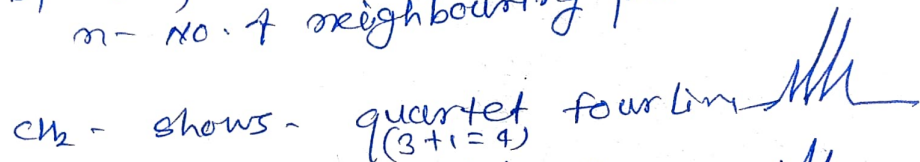 n- No. of neighbouring
CH2 - shows - quartet four line
(3+1=4)